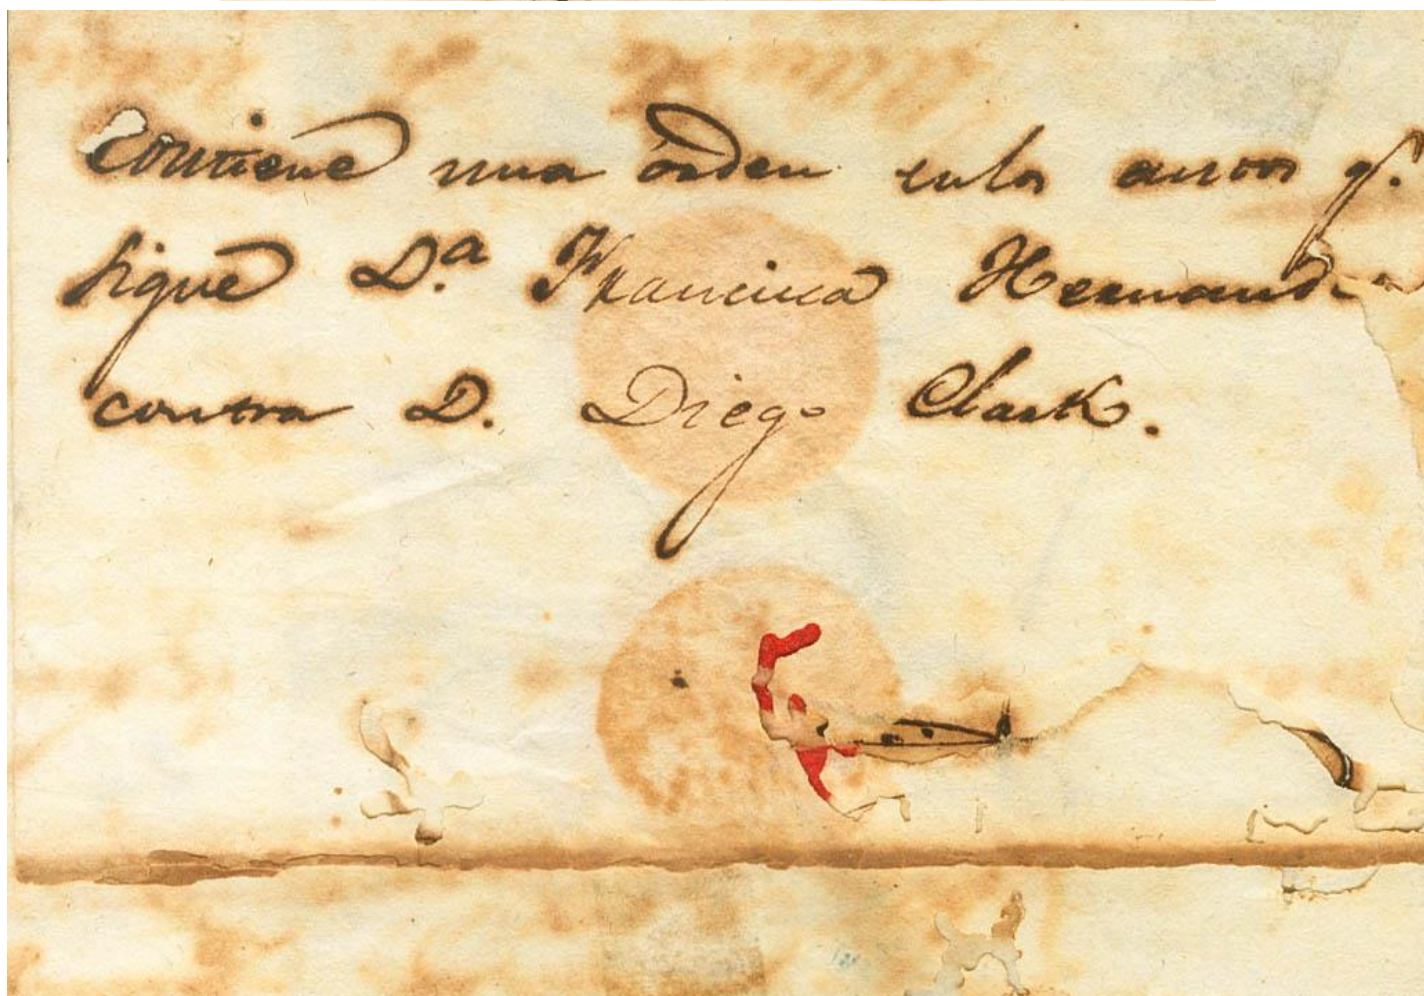 Contiene una órden en los autos q.
sigue D.ª Francisca Hernand
contra D. Diego Clark.